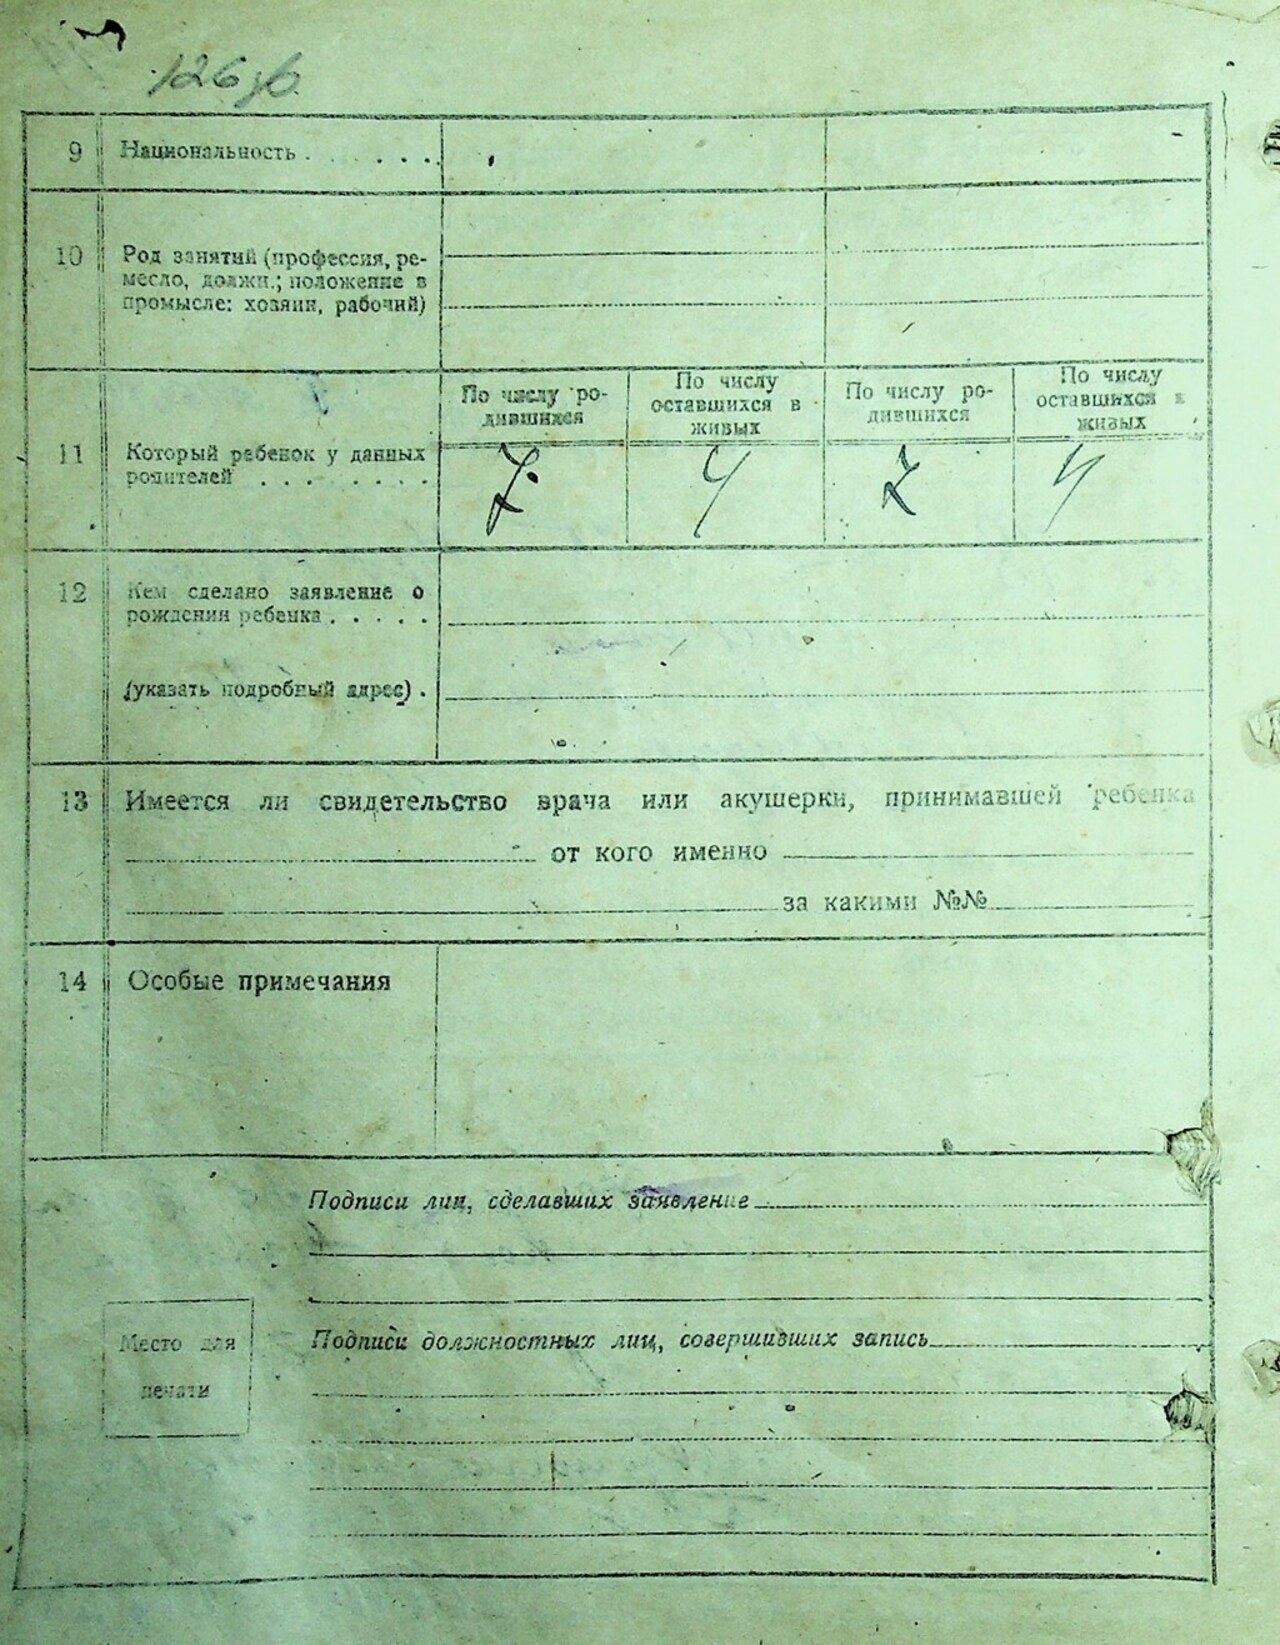 126 об
9 Национальность . . . . . . .
10 Род занятий (профессия, ре-
месло, должн.; положение в
промысле: хозяин, рабочий)
По числу ро-
дившихся
По числу
оставшихся в
живых
По числу ро-
дившихся
По числу
оставшихся в
живых
11 Который ребенок у данных
родителей . . . . . . . .
7. 4 7 4
12 Кем сделано заявление о
рождения ребенка . . . . .
(указать подробный адрес) .
13 Имеется ли свидетельство врача или акушерки, принимавшей ребенка
от кого именно
за какими №№
14 Особые примечания
Подписи лиц, сделавших заявление
Подписи должностных лиц, совершивших запись
Место для
печати